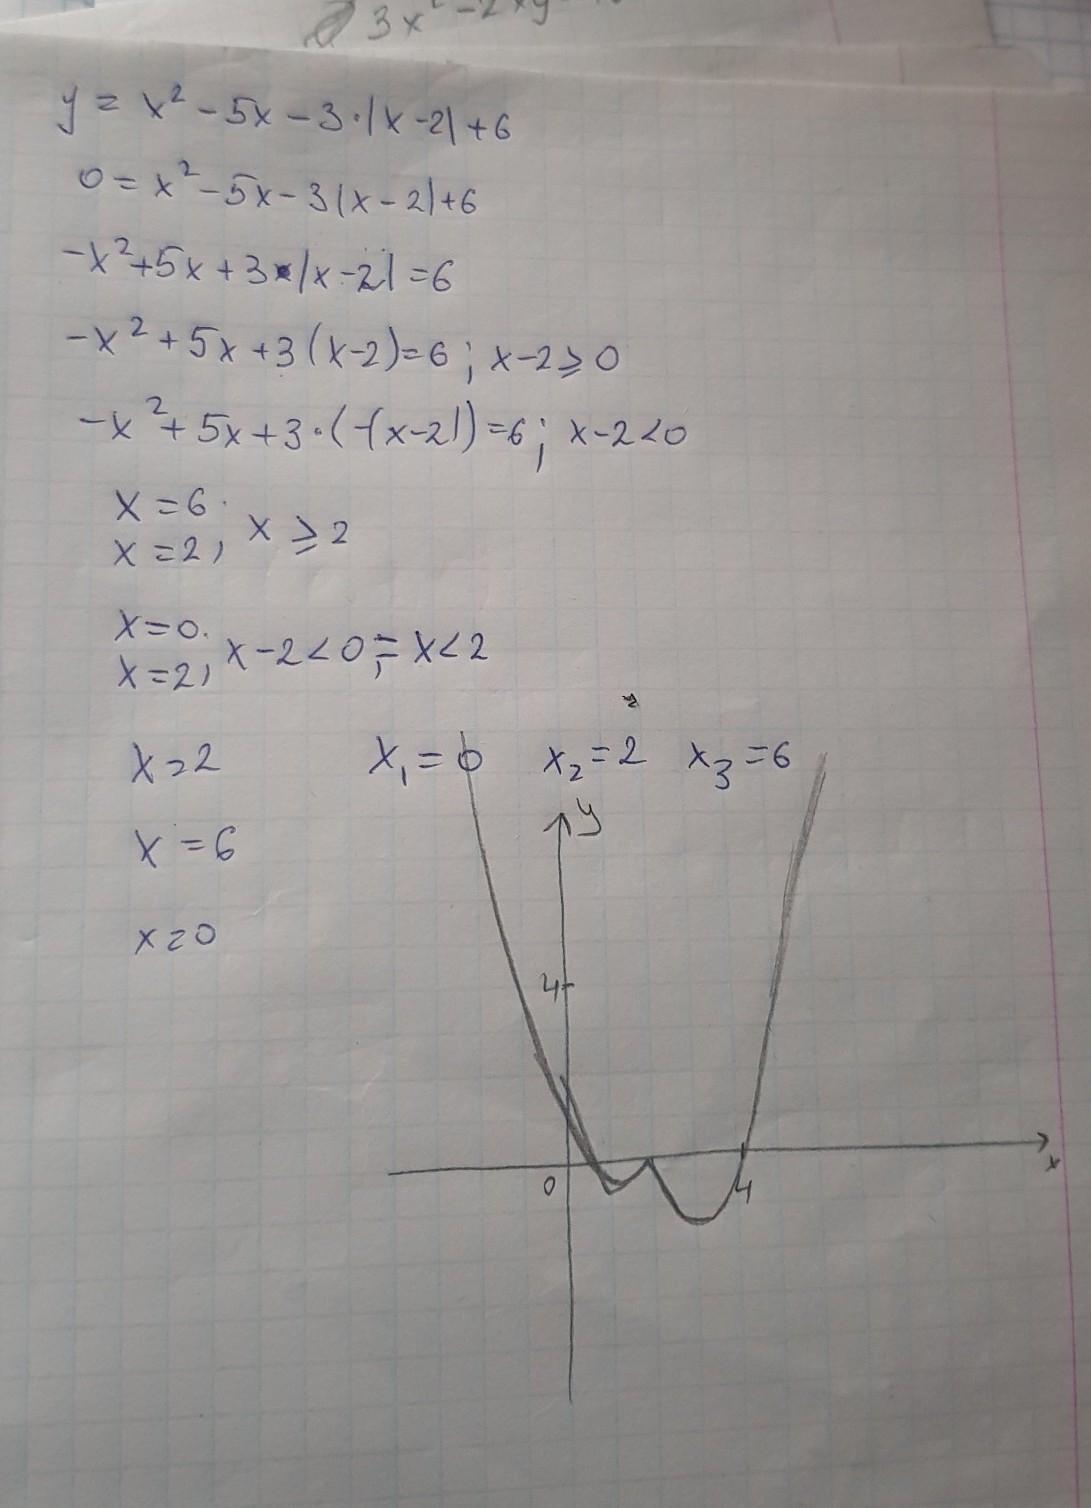 3x² - 2xy
y = x² - 5x - 3·|x - 2| + 6
0 = x² - 5x - 3|x - 2| + 6
-x² + 5x + 3|x - 2| = 6
-x² + 5x + 3(x - 2) = 6; x - 2 ⩾ 0
-x² + 5x + 3·(-(x - 2|) = 6; x - 2 < 0
x = 6
x = 2, x ⩾ 2
x = 0.
x = 2, x - 2 < 0 ; = x < 2
x = 2 x₁ = 0 x₂ = 2 x₃ = 6
x = 6
x = 0
y
4
0 4 x